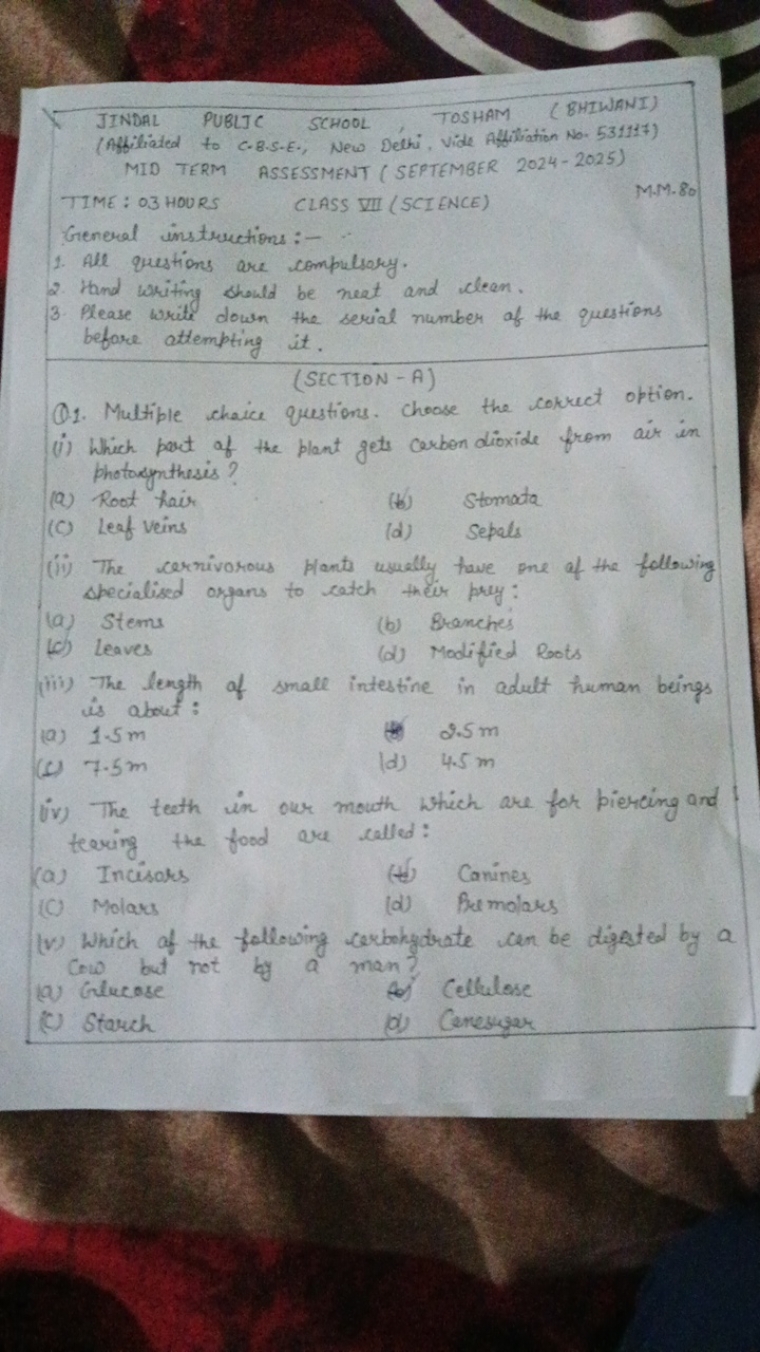 JINDAL PUBLIC SCHOOL, TOSHAM (BHIWANI)
(Affiliated to C.B.S.E., New Delhi, Vide Affiliation No. 531117)
MID TERM ASSESSMENT (SEPTEMBER 2024-2025)
TIME: 03 HOURS CLASS VII (SCIENCE) M.M.80
General instructions:-
1. All questions are compulsory.
2. Hand writing should be neat and clean.
3. Please write down the serial number of the questions
before attempting it.
(SECTION-A)
Q1. Multiple choice questions. Choose the correct option.
(i) Which part of the plant gets carbon dioxide from air in
photosynthesis?
(a) Root hair (b) Stomata
(c) Leaf veins (d) Sepals
(ii) The carnivorous plants usually have one of the following
specialised organs to catch their prey:
(a) Stems (b) Branches
(c) Leaves (d) Modified Roots
(iii) The length of small intestine in adult human beings
is about:
(a) 1.5m (b) 2.5m
(c) 7.5m (d) 4.5m
(iv) The teeth in our mouth which are for piercing and
tearing the food are called:
(a) Incisors (b) Canines
(c) Molars (d) Premolars
(v) Which of the following carbohydrate can be digested by a
cow but not by a man?
(a) Glucose (b) Cellulose
(c) Starch (d) Canesugar